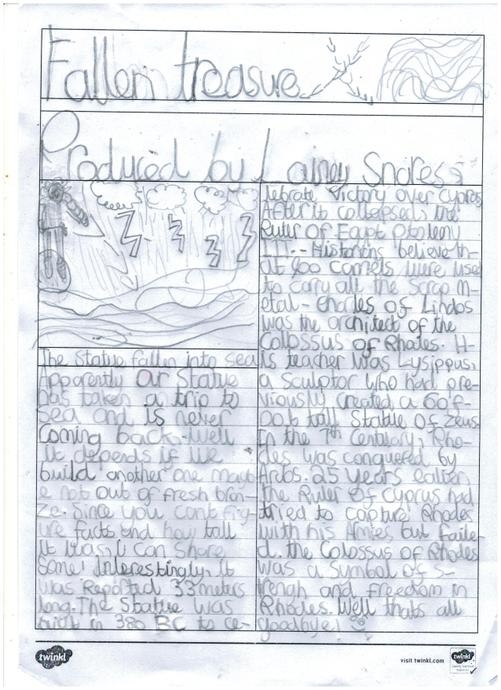 Fallen treasure
Produced by Lainey Snares
The Statue fallen into sea
Apparently Our Statue
has taken a trip to
Sea and is never
Coming back. well
it depends if we
build another one mayb
e not out of fresh bron-
ze. Since you cant fig-
ure facts and how tall
it was I can share
Some! Interestingly, it
was Reported 33 meters
long. The Statue was
built in 380 BC to ce-
lebrate Victory over Cyprus
After it collepsed, the
Ruler of Egypt Ptolemy
III.- Historians believe th-
at 900 camels were used
to carry all the scrap m-
etal- Charles of Lindos
was the architect of the
Colossus of Rhodes. H-
is teacher was Lysippus,
a Sculptor who had pre-
viously created a 60 f-
oot tall Statue of Zeus
In the 7th Century, Rho-
des was conquered by
Arabs. 25 years earlier
the Ruler of Cyprus had
tried to capture Rhodes
with his Armies, but faile-
d. the Colossus of Rhodes
was a Symbol of s-
trengh and freedom in
Rhodes. Well thats all
goodbye!
twinkl
visit twinkl.com